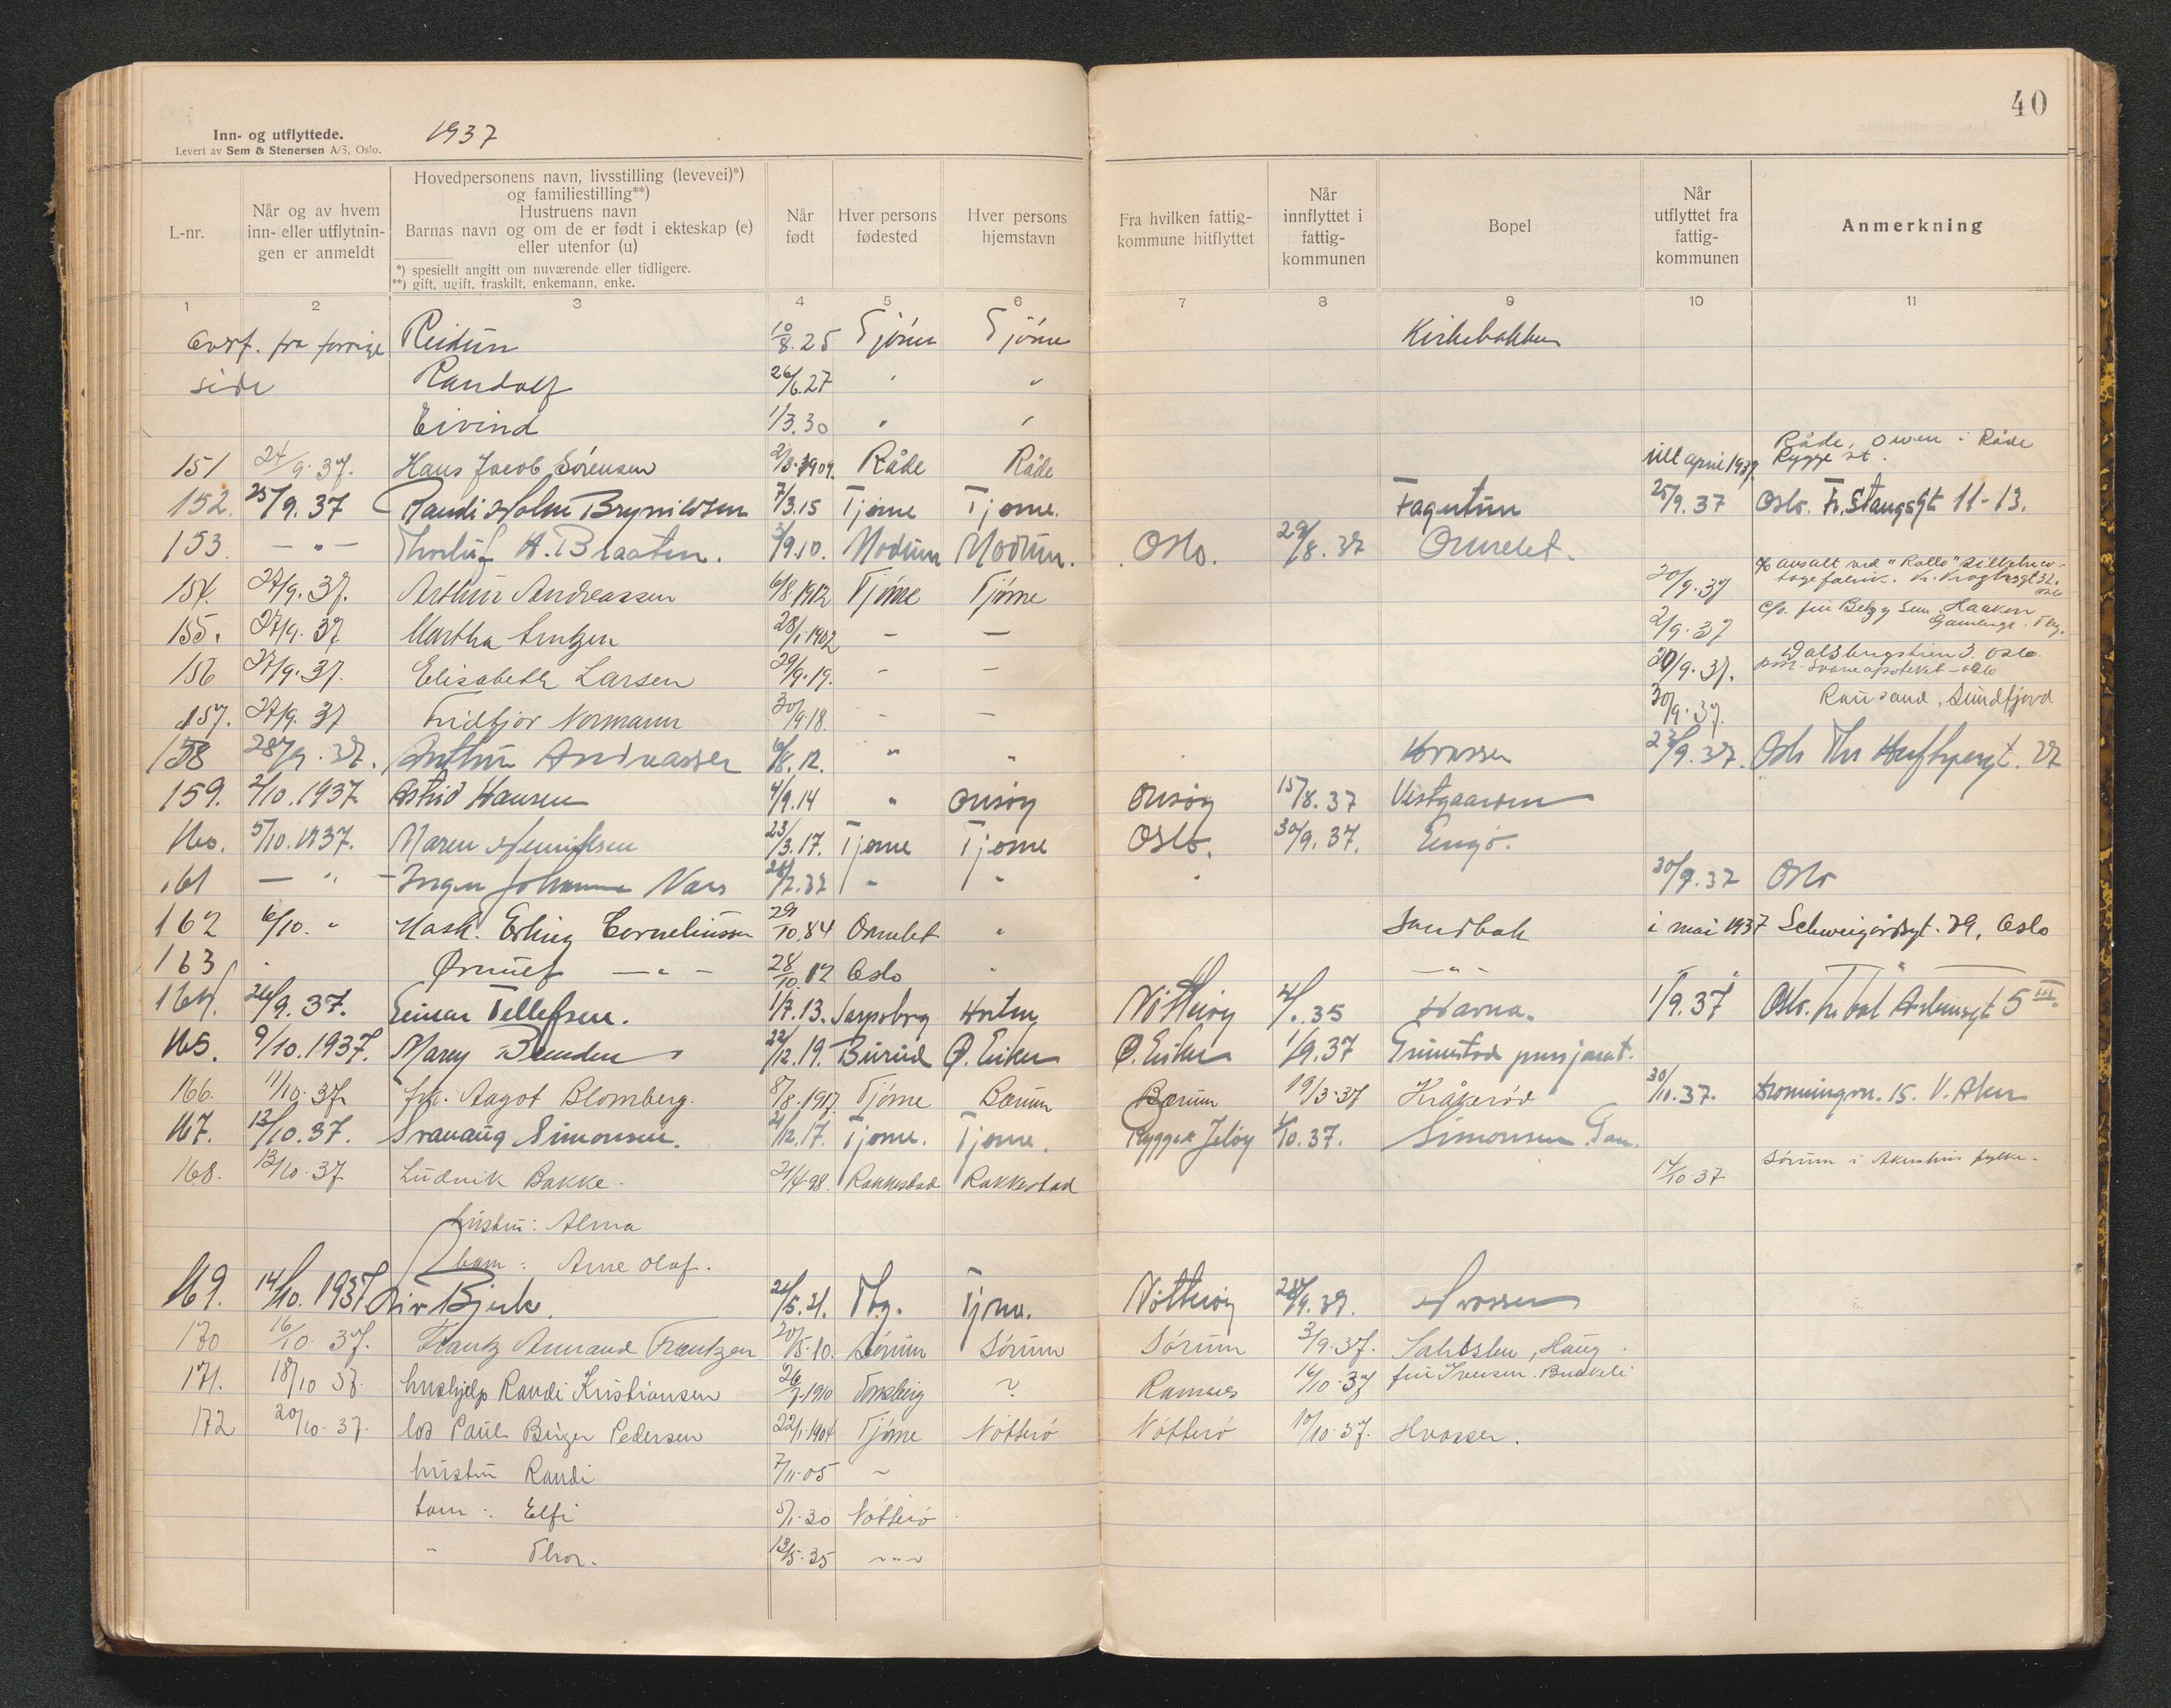 40
Inn- og utflyttede.
Levert av Sem & Stenersen A/S, Oslo.
1937
L-nr.
Når og av hvem inn- eller utflytnin-gen er anmeldt
Hovedpersonens navn, livsstilling (levevei)*)
og familiestilling**)
Hustruens navn
Barnas navn og om de er født i ekteskap (e)
eller utenfor (u)
*) spesielt angitt om nuværende eller tidligere.
**) gift, ugift, fraskilt, enkemann, enke.
Når født
Hver persons fødested
Hver persons hjemstavn
Fra hvilken fattig-kommune hitflyttet
Når innflyttet i fattig-kommunen
Bopel
Når utflyttet fra fattig-kommunen
Anmerkning
1 2 3 4 5 6 7 8 9 10 11
overf. fra forrige Reidun 10/8.25 Tjöme Tjöme Kirkebakken
side Randolf 26/6.27 " "
Eivind 1/3.30 " "
151 24/9.37. Hans Jacob Sörensen 2/3.1909. Råde Råde till april 1937. Råde, i Råde
Rygge st.
152. 25/9.37 Randi Holm Brynildsen 7/3.15 Tjøme Tjøme. Fagutun 25/9.37 Oslo. Fr. Stangsgt 11-13.
153. — " — Thorleif A. Braaten. 3/9.10. Modum Modum. Oslo. 29/8.37 Ormelet.
154. 27/9.37. Arthur Andreassen 6/8.1912 Tjöme Tjöme 20/9.37 ansatt ved "Rollo"
Kr. Kroghsgt 32. Oslo
155. 27/9.37 Martha Arntzen 28/1.1902 — — 2/9.37 c/o. fru Betzy Sem. Haakon
Gamlesgt. Tbg.
156 27/9.37. Elisabeth Larsen 29/9.19. — — 20/9.37. Dalsbergstien 3. Oslo.
Svaneapoteket - Oslo
157. 27/9.37 Fridtjov Normann 30/9.18 — — 30/9.37. Rausand, Sundfjord
158 28/9.37. Arthur Andreassen 6/8.12. " " Hvasser 22/9.37. Oslo Thv 27
159. 2/10.1937. Astrid Hansen 4/9.14 " Onsöy Onsöy 15/8.37 Vestgaarden
160. 5/10.1937. Maren Henriksen 23/3.17. Tjøme Tjøme Oslo. 30/9.37. Engö.
161 — " — Inger Johanne Næs " " 20/9.37 Oslo
162 6/10. " Mask. Erling Corneliussen 29/10.84 Ormelet " Sandbak i mai 1937 Schweigårdsgt. 39, Oslo
163 " Ørnulf — " — 28/10.12 Oslo " — " — "
164. 26/9.37. Einar Tellefsen. 1/7.13. Sarpsborg Horten Nötteröy 35 Havna. 1/9.37 Oslo. 5 III.
165. 9/10.1937. Mary 22/12.19. Burud Ø. Eiker Ø. Eiker 1/9.37 Grimstad pensjonat.
166. 11/10.37. frk. Aagot Blomberg. 8/8.1917 Tjöme Bærum Bærum 19/3.37 Kråkeröd 30/11.37. Dronningvn. 15. V. Aker
167. 13/10.37. Svanaug Simonsen. 21/12.17. Tjøme. Tjøme. Rygge Jelöy 10.37. Simonsen
168. 13/10.37 Ludvik Bakke. 21/4.98. Rakkestad Rakkestad 14/10.37 Sörum i Akershus fylke.
hustru: Alma
barn: Arne Olaf.
169. 14/10.1937 Siv Bjerk. 21/5.21. Tbg. Tjøme. Nötteröy 28/9.37. Hvasser
170 16/10.37. Frantz Armand Frantzen 20/5.10. Sörum Sörum Sörum 3/9.37. Haug.
171. 18/10 37. hushjelp Randi Kristiansen 26/7.1910 Tönsberg ? Ramnes 16/10.37 fru Iversen. Budkeli
172 20/10.37. los Paul Birger Pedersen 22/1.1904 Tjöme Nötterö Nötterö 10/10.37. Hvasser.
hustru Randi 7/11.05 —
barn: Elfi 5/1.30 Nötterö
" Thor. 13/5.35 — " —